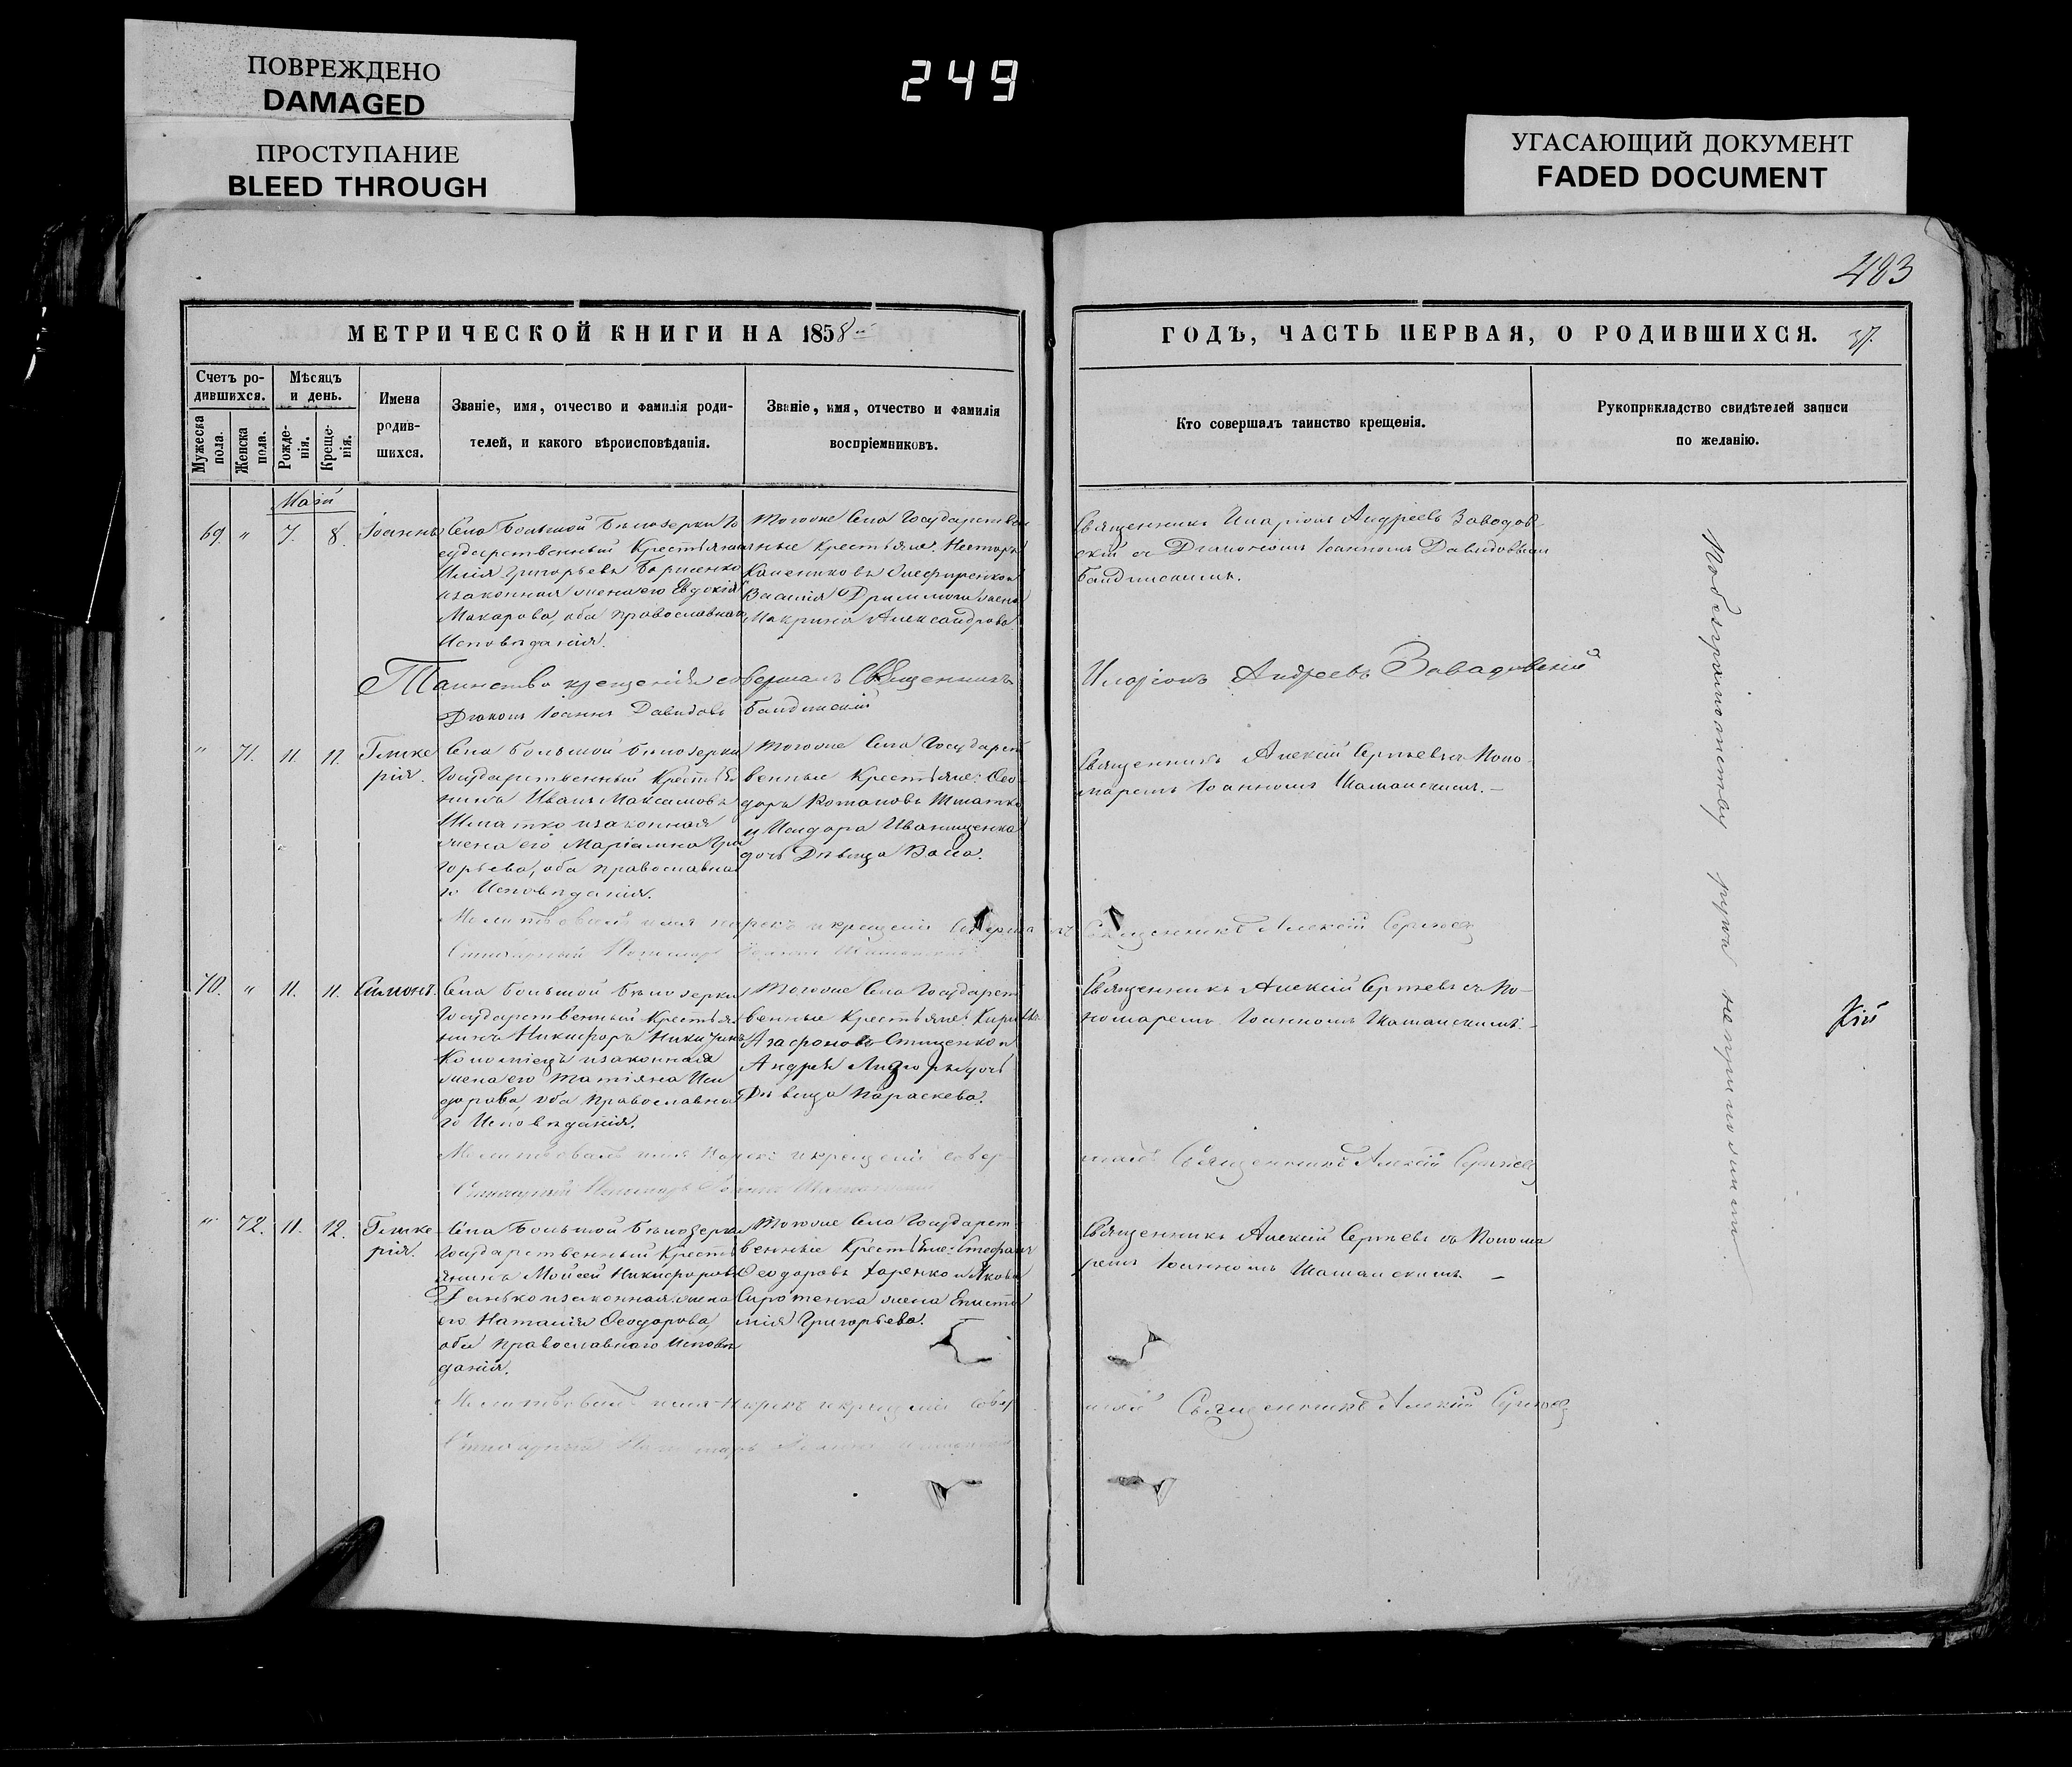 ПОВРЕЖДЕНО
DAMAGED
ПРОСТУПАНИЕ
BLEED THROUGH
249
УГАСАЮЩИЙ ДОКУМЕНТ
FADED DOCUMENT
483
МЕТРИЧЕСКОЙ КНИГИ НА 1858
ГОДЪ, ЧАСТЬ ПЕРВАЯ, О РОДИВШИХСЯ. 37.
Счетъ ро-
дившихся.
Мужеска
пола.
Женска
пола.
Мѣсяцъ
и день.
Рожде-
нія.
Креще-
нія.
Имена
родив-
шихся.
Званіе, имя, отчество и фамилія роди-
телей, и какого вѣроисповѣданія.
Званіе, имя, отчество и фамилія
воспріемниковъ.
Кто совершалъ таинство крещенія.
Рукоприкладство свидѣтелей записи
по желанію.
Маій
69. " 7. 8. Іоаннъ
Села Большой Бѣлозерки Го
сударственный Крестьянинъ
Илія Григорьевъ Борисенко
изаконная жена его Евдокія
Макарова, оба православнаго
Исповѣданія.
Тогоже Села Государствен
ные крестьяне: Несторъ
Василія жена
Макрина Александрова
Священникъ Иларіонъ Андреевъ Заводов-
скій съ Діакономъ Іоанномъ Давидовымъ
Таинство крещенія совершалъ Священникъ
Иларіонъ Андреевъ Завадовскій
Діаконъ Іоаннъ Давидовъ
" 71. 11. 11. Глике
рія.
Села Большой Бѣлозерки
Государственный Крестья
нинъ Иванъ Максимовъ
Шматко изаконная
жена его Маріамна Гри
горьева, оба православна
го Исповѣданія.
Тогоже Села Государст
венные Крестьяне: Ѳео
доръ Потаповъ Шматко
и Исидора Иванищенка
дочь Дѣвица Васса.
Священникъ Алексій Сергѣевъ съ Поно-
маремъ Іоанномъ
Молитвовалъ имя нарекъ и крещеніе совершалъ Священникъ Алексій Сергѣевъ
Стихарный Пономарь Іоаннъ
70. " 11. 11. Симонъ.
Села Большой Бѣлозерки
Государственный Крестья
нинъ Никифоръ
Коломіецъ изаконная
жена его Татіяна Иси
дорова, оба Православна
го Исповѣданія.
Тогоже Села Государст
венные Крестьяне: Кириллъ
Агафоновъ и
Андрея дочь
Дѣвица Параскева.
Священникъ Алексій Сергѣевъ съ По-
номаремъ Іоанномъ
Молитвовалъ имя Нарекъ и крещеніе совер-
шалъ Священникъ Алексій Сергѣевъ
Стихарный Пономарь Іоаннъ
" 72. 11. 12. Глике
рія.
Села Большой Бѣлозерки
Государственный Кресть
янинъ Моисей Никифоровъ
изаконная жена
его Наталія Ѳеодорова,
оба Православнаго Исповѣ
данія.
Тогоже Села Государст-
венные Крестьяне: Стефанъ
Ѳеодоровъ и Якова
Сиротенка жена Епистимія
Григорьева.
Священникъ Алексій Сергѣевъ съ Понома
ремъ Іоанномъ
Молитвовалъ имя Нарекъ и крещеніе совер
шалъ Священникъ Алексій Сергѣевъ
Стихарный Пономарь
По безграмотству руки неприложили.